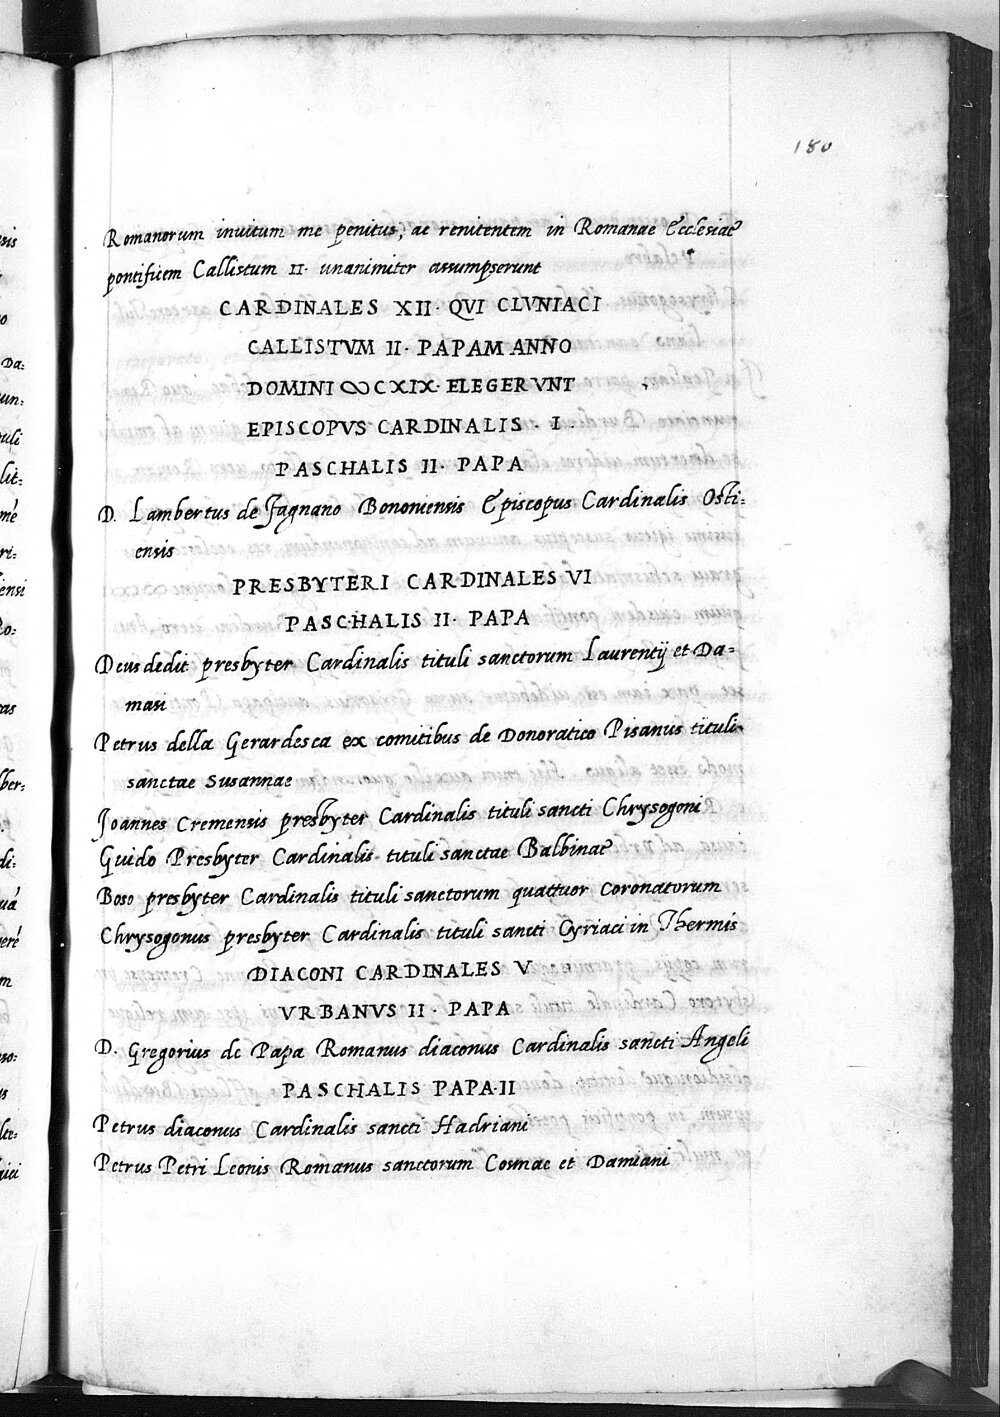 180
Romanorum invitum me penitus, ac renitentem in Romanae Ecclesiae
pontificem Callistum II. unanimiter assumpserunt
CARDINALES XII. QVI CLVNIACI
CALLISTVM II. PAPAM ANNO
DOMINI ↀCXIX. ELEGERVNT
EPISCOPVS CARDINALIS . I .
PASCHALIS II. PAPA
D. Lambertus de Fagnano Bononiensis Episcopus Cardinalis Osti=
ensis
PRESBYTERI CARDINALES VI
PASCHALIS II. PAPA
Deusdedit presbyter Cardinalis tituli sanctorum Laurentij et Da=
masi
Petrus della Gerardesca ex comitibus de Donoratico Pisanus tituli
sanctae Susannae
Joannes Cremensis presbyter Cardinalis tituli sancti Chrysogoni
Guido Presbyter Cardinalis tituli sanctae Balbinae
Boso presbyter Cardinalis tituli sanctorum quattuor Coronatorum
Chrysogonus presbyter Cardinalis tituli sancti Cyriaci in Thermis
DIACONI CARDINALES V
VRBANVS II. PAPA
D. Gregorius de Papa Romanus diaconus Cardinalis sancti Angeli
PASCHALIS PAPA.II
Petrus diaconus Cardinalis sancti Hadriani
Petrus Petri Leonis Romanus sanctorum Cosmae et Damiani